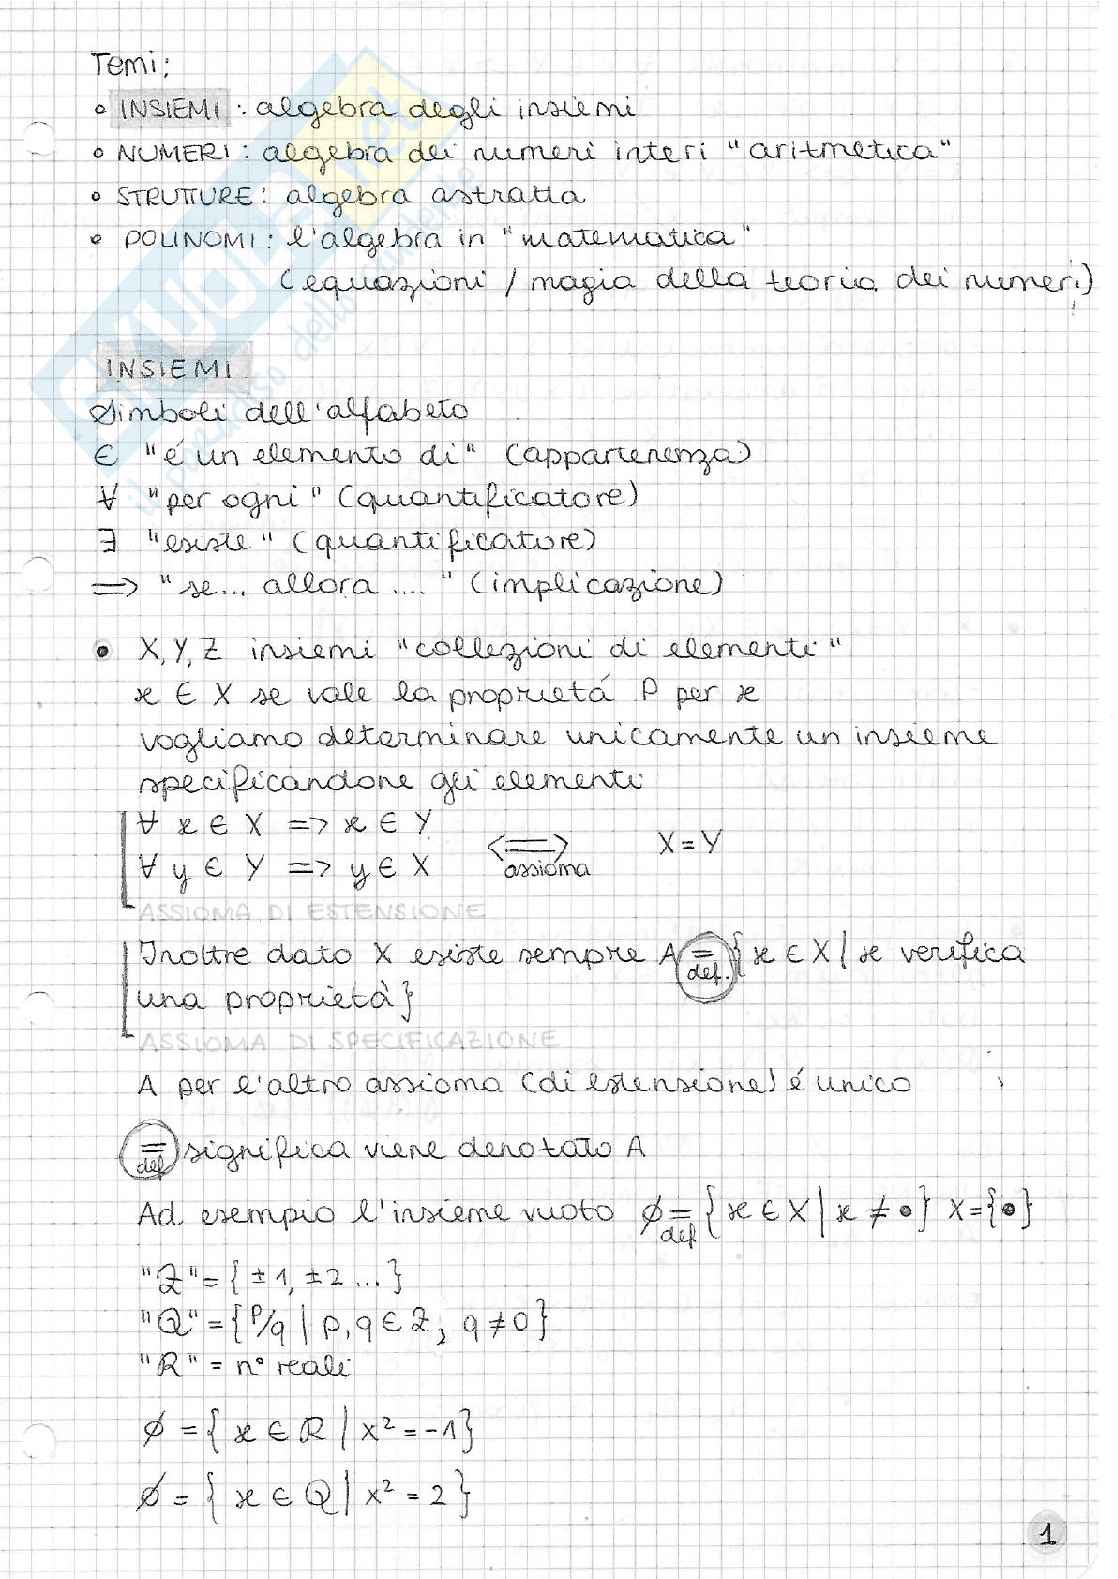 Temi:
• INSIEMI: algebra degli insiemi
• NUMERI: algebra dei numeri interi "aritmetica"
• STRUTTURE: algebra astratta
• POLINOMI: l'algebra in "matematica"
(equazioni / magia della teoria dei numeri)
INSIEMI
Simboli dell'alfabeto
∈ "é un elemento di" (appartenenza)
∀ "per ogni" (quantificatore)
∃ "esiste" (quantificatore)
=> "se... allora ...." (implicazione)
• X, Y, Z insiemi "collezioni di elementi"
x ∈ X se vale la proprietá P per x
vogliamo determinare unicamente un insieme
specificandone gli elementi
∀ x ∈ X => x ∈ Y
∀ y ∈ Y => y ∈ X <=> assioma X = Y
ASSIOMA DI ESTENSIONE
Inoltre dato X esiste sempre A = def. {x ∈ X | x verifica
una proprietà}
ASSIOMA DI SPECIFICAZIONE
A per l'altro assioma (di estensione) é unico
= def significa viene denotato A
Ad esempio l'insieme vuoto ∅ = def {x ∈ X | x ≠ •} X={•}
"Z" = {±1, ±2 ...}
"Q" = {P/q | p, q ∈ Z, q ≠ 0}
"R" = n° reali
∅ = {x ∈ R | x² = -1}
∅ = {x ∈ Q | x² = 2}
1